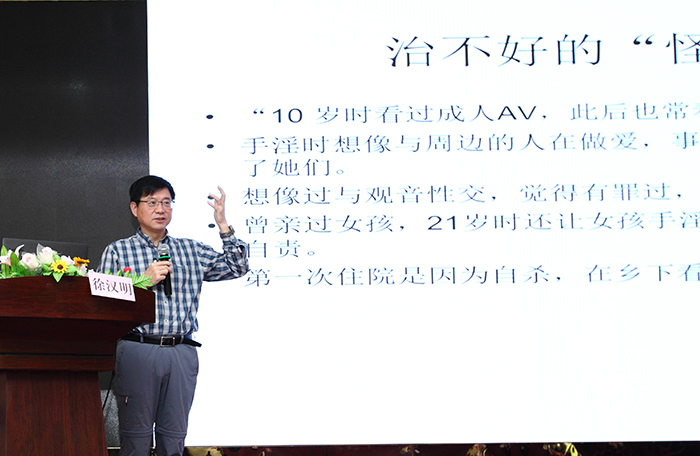 治不好的“怪
“10 岁时看过成人AV，此后也常
手淫时想像与周边的人在做爱，事
了她们。
想像过与观音性交，觉得有罪过，
曾亲过女孩，21岁时还让女孩手淫
自责。
第一次住院是因为自杀，在乡下看
徐汉明